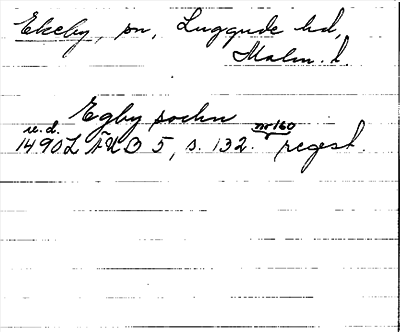 Ekeby, sn, Luggude hd,
Malm. l.
Egby sochn
u.d. nr 160
1490 L ÄUB 5, s. 132. regest.